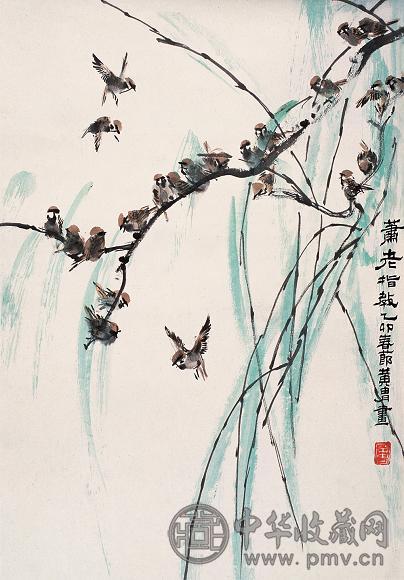 萧老指教乙卯春节黄胄画
中华收藏网
www.pmv.cn